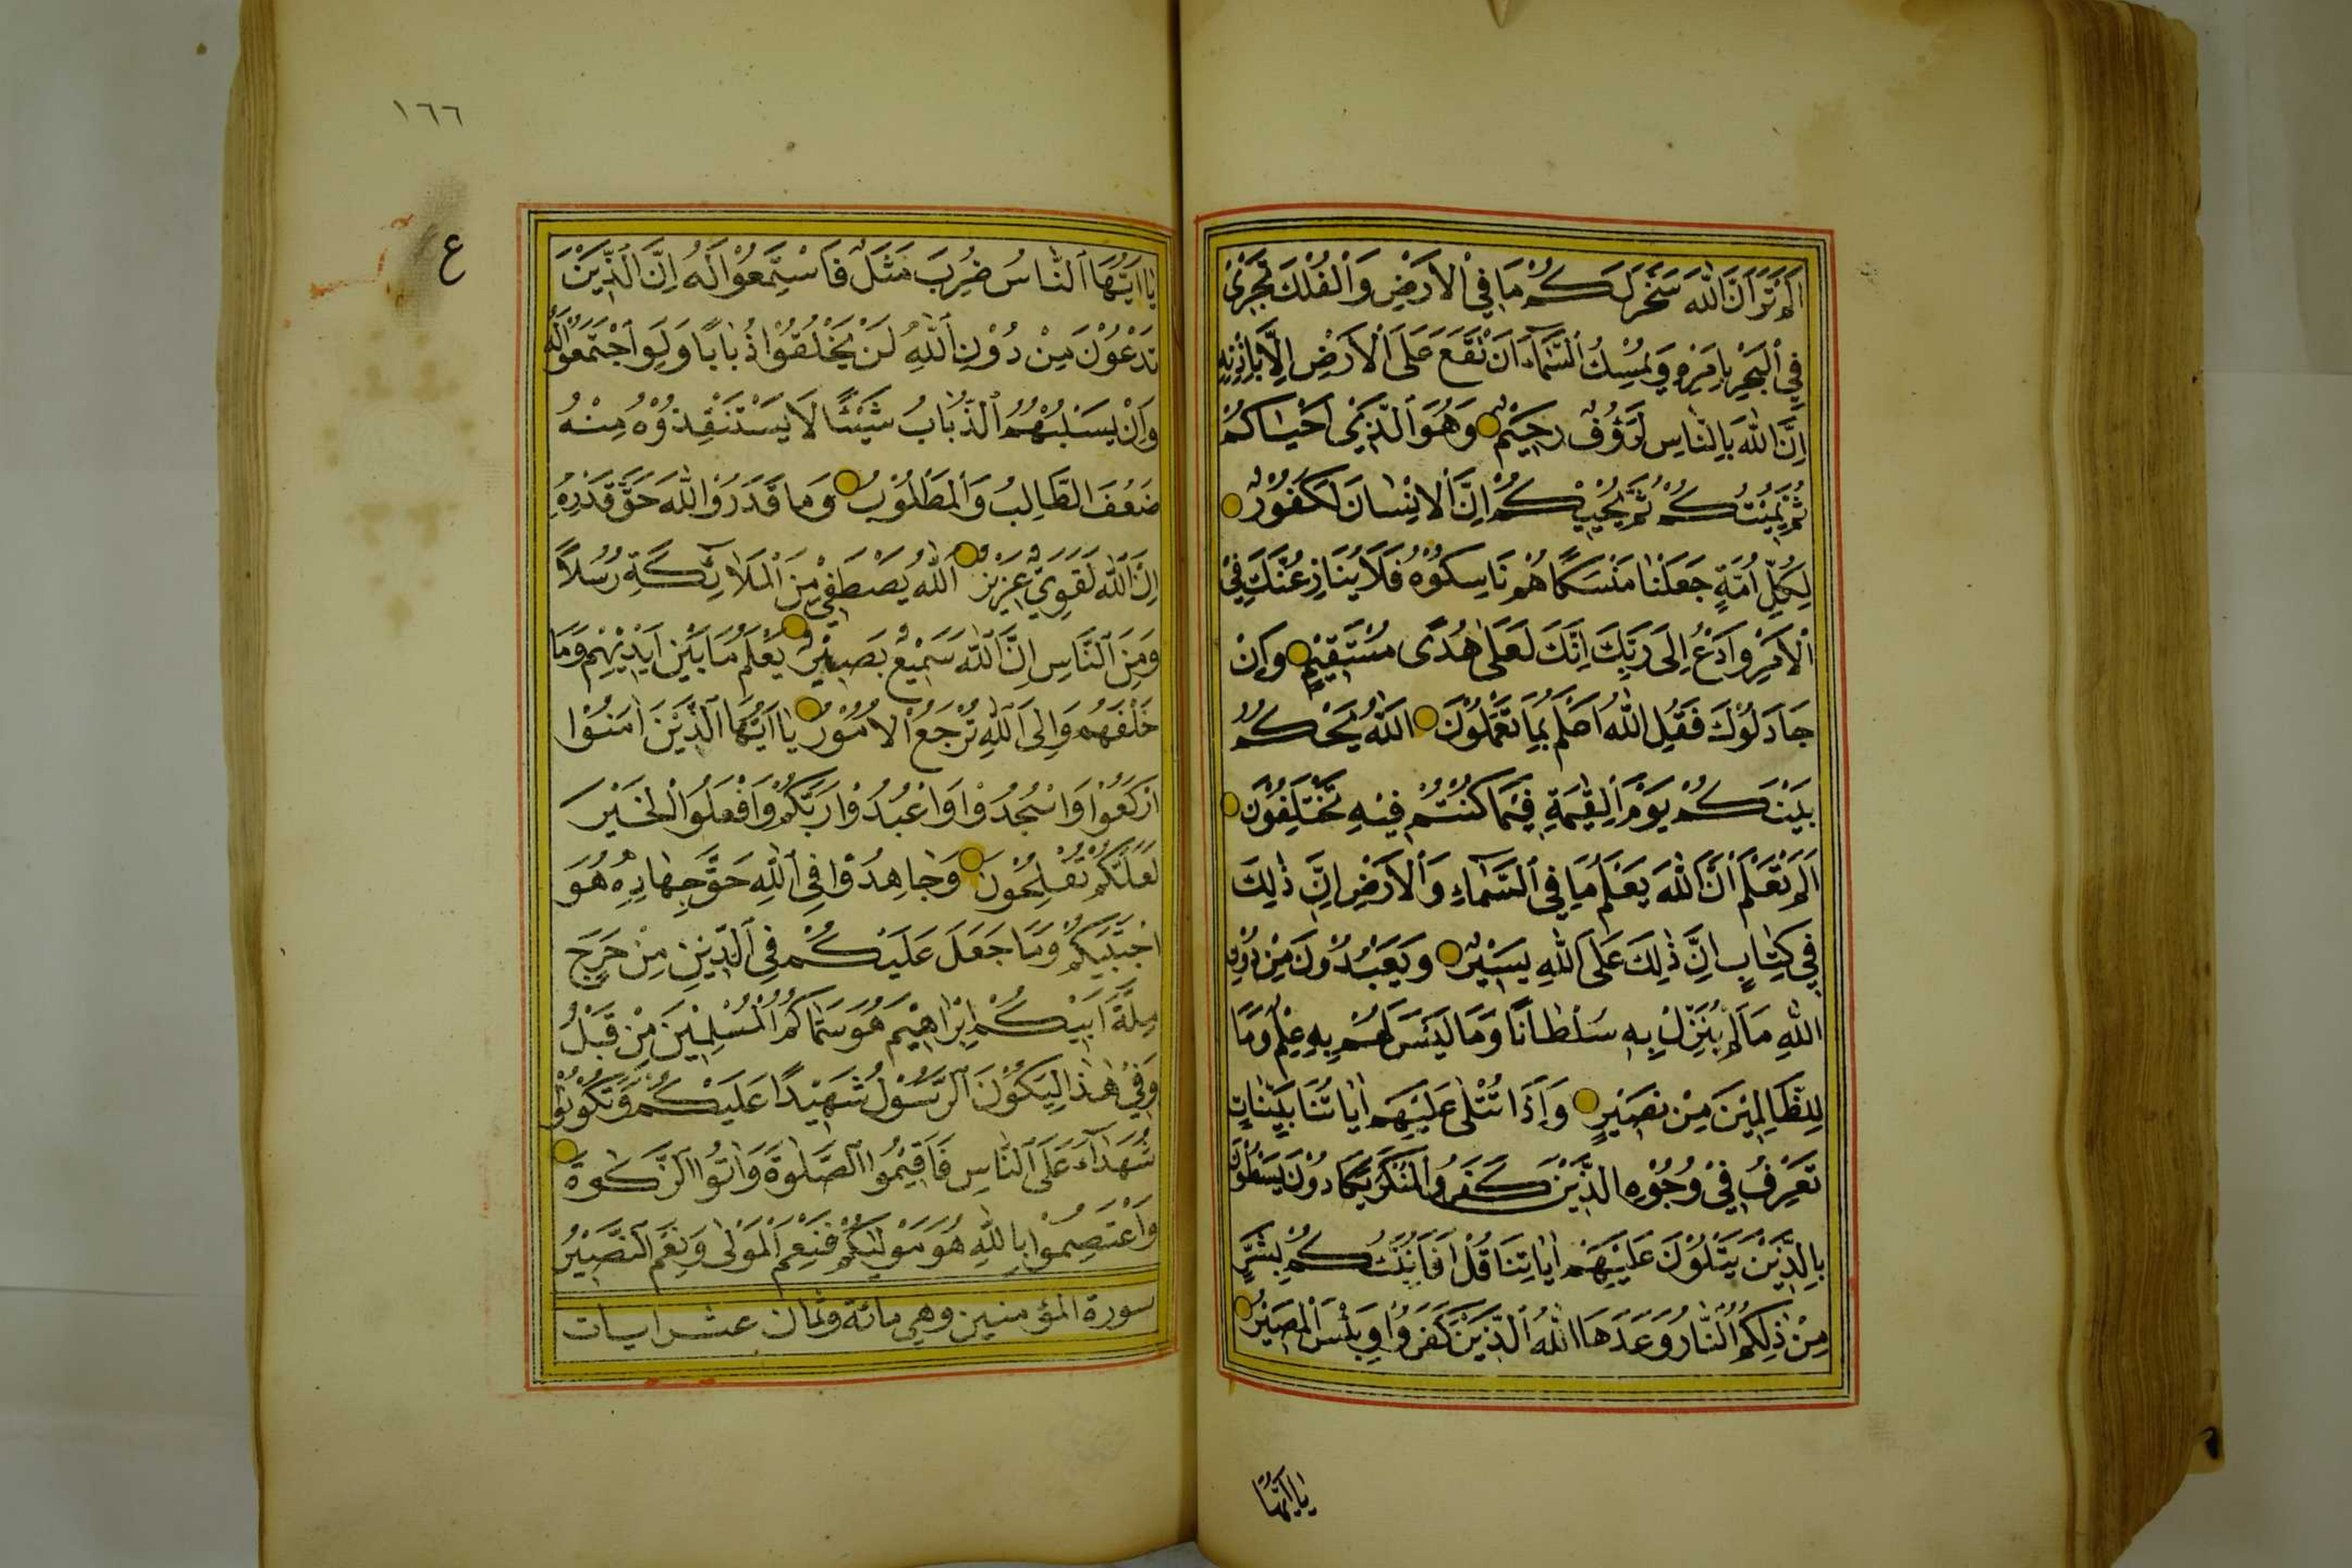 اَلَمْ تَرَ اَنَّ اللّٰهَ سَخَّرَ لَكُمْ مَا فِي الْاَرْضِ وَالْفُلْكَ تَجْرِيْ
فِي الْبَحْرِ بِاَمْرِهِ وَيُمْسِكُ السَّمَآءَ اَنْ تَقَعَ عَلَى الْاَرْضِ اِلَّا بِاِذْنِهِ
اِنَّ اللّٰهَ بِالنَّاسِ لَرَؤُفٌ رَحِيْمٌ وَهُوَ الَّذِيْ اَحْيَاكُمْ
ثُمَّ يُمِيْتُكُمْ ثُمَّ يُحْيِيْكُمْ اِنَّ الْاِنْسَانَ لَكَفُوْرٌ
لِكُلِّ اُمَّةٍ جَعَلْنَا مَنْسَكًا هُمْ نَاسِكُوْهُ فَلَا يُنَازِعُنَّكَ فِيْ
الْاَمْرِ وَادْعُ اِلَى رَبِّكَ اِنَّكَ لَعَلٰى هُدًى مُسْتَقِيْمٍ وَاِنْ
جَادَلُوْكَ فَقُلِ اللّٰهُ اَعْلَمُ بِمَا تَعْمَلُوْنَ اللّٰهُ يَحْكُمُ
بَيْنَكُمْ يَوْمَ الْقِيٰمَةِ فِيْمَا كُنْتُمْ فِيْهِ تَخْتَلِفُوْنَ
اَلَمْ تَعْلَمْ اَنَّ اللّٰهَ يَعْلَمُ مَا فِي السَّمَآءِ وَالْاَرْضِ اِنَّ ذٰلِكَ
فِي كِتَابٍ اِنَّ ذٰلِكَ عَلَى اللّٰهِ يَسِيْرٌ وَيَعْبُدُوْنَ مِنْ دُوْنِ
اللّٰهِ مَا لَمْ يُنَزِّلْ بِهِ سُلْطَانًا وَمَا لَيْسَ لَهُمْ بِهِ عِلْمٌ وَمَا
لِلظَّالِمِيْنَ مِنْ نَصِيْرٍ وَاِذَا تُتْلٰى عَلَيْهِمْ اٰيَاتُنَا بَيِّنَاتٍ
تَعْرِفُ فِيْ وُجُوْهِ الَّذِيْنَ كَفَرُوا الْمُنْكَرَ يَكَادُوْنَ يَسْطُوْنَ
بِالَّذِيْنَ يَتْلُوْنَ عَلَيْهِمْ اٰيَاتِنَا قُلْ اَفَاُنَبِّئُكُمْ بِشَرٍّ
مِنْ ذٰلِكُمُ النَّارُ وَعَدَهَا اللّٰهُ الَّذِيْنَ كَفَرُوْا وَبِئْسَ الْمَصِيْرُ
يَا اَيُّهَا
١٦٦
ع
يَا اَيُّهَا النَّاسُ ضُرِبَ مَثَلٌ فَاسْتَمِعُوْا لَهُ اِنَّ الَّذِيْنَ
تَدْعُوْنَ مِنْ دُوْنِ اللّٰهِ لَنْ يَخْلُقُوْا ذُبَابًا وَلَوِ اجْتَمَعُوْا لَهُ
وَاِنْ يَسْلُبْهُمُ الذُّبَابُ شَيْئًا لَا يَسْتَنْقِذُوْهُ مِنْهُ
ضَعُفَ الطَّالِبُ وَالْمَطْلُوْبُ وَمَا قَدَرُوا اللّٰهَ حَقَّ قَدْرِهِ
اِنَّ اللّٰهَ لَقَوِيٌّ عَزِيْزٌ اَللّٰهُ يَصْطَفِيْ مِنَ الْمَلَآئِكَةِ رُسُلًا
وَمِنَ النَّاسِ اِنَّ اللّٰهَ سَمِيْعٌ بَصِيْرٌ يَعْلَمُ مَا بَيْنَ اَيْدِيْهِمْ وَمَا
خَلْفَهُمْ وَاِلَى اللّٰهِ تُرْجَعُ الْاُمُوْرُ يَا اَيُّهَا الَّذِيْنَ اٰمَنُوْا
ارْكَعُوْا وَاسْجُدُوْا وَاعْبُدُوْا رَبَّكُمْ وَافْعَلُوا الْخَيْرَ
لَعَلَّكُمْ تُفْلِحُوْنَ وَجَاهِدُوْا فِي اللّٰهِ حَقَّ جِهَادِهِ هُوَ
اجْتَبٰيكُمْ وَمَا جَعَلَ عَلَيْكُمْ فِي الدِّيْنِ مِنْ حَرَجٍ
مِلَّةَ اَبِيْكُمْ اِبْرَاهِيْمَ هُوَ سَمّٰاكُمُ الْمُسْلِمِيْنَ مِنْ قَبْلُ
وَفِيْ هٰذَا لِيَكُوْنَ الرَّسُوْلُ شَهِيْدًا عَلَيْكُمْ وَتَكُوْنُوْا
شُهَدَآءَ عَلَى النَّاسِ فَاَقِيْمُوا الصَّلٰوةَ وَاٰتُوا الزَّكٰوةَ
وَاعْتَصِمُوْا بِاللّٰهِ هُوَ مَوْلٰيكُمْ فَنِعْمَ الْمَوْلٰى وَنِعْمَ النَّصِيْرُ
سورة المؤمنين وهي مائة وثمان عشر ايات